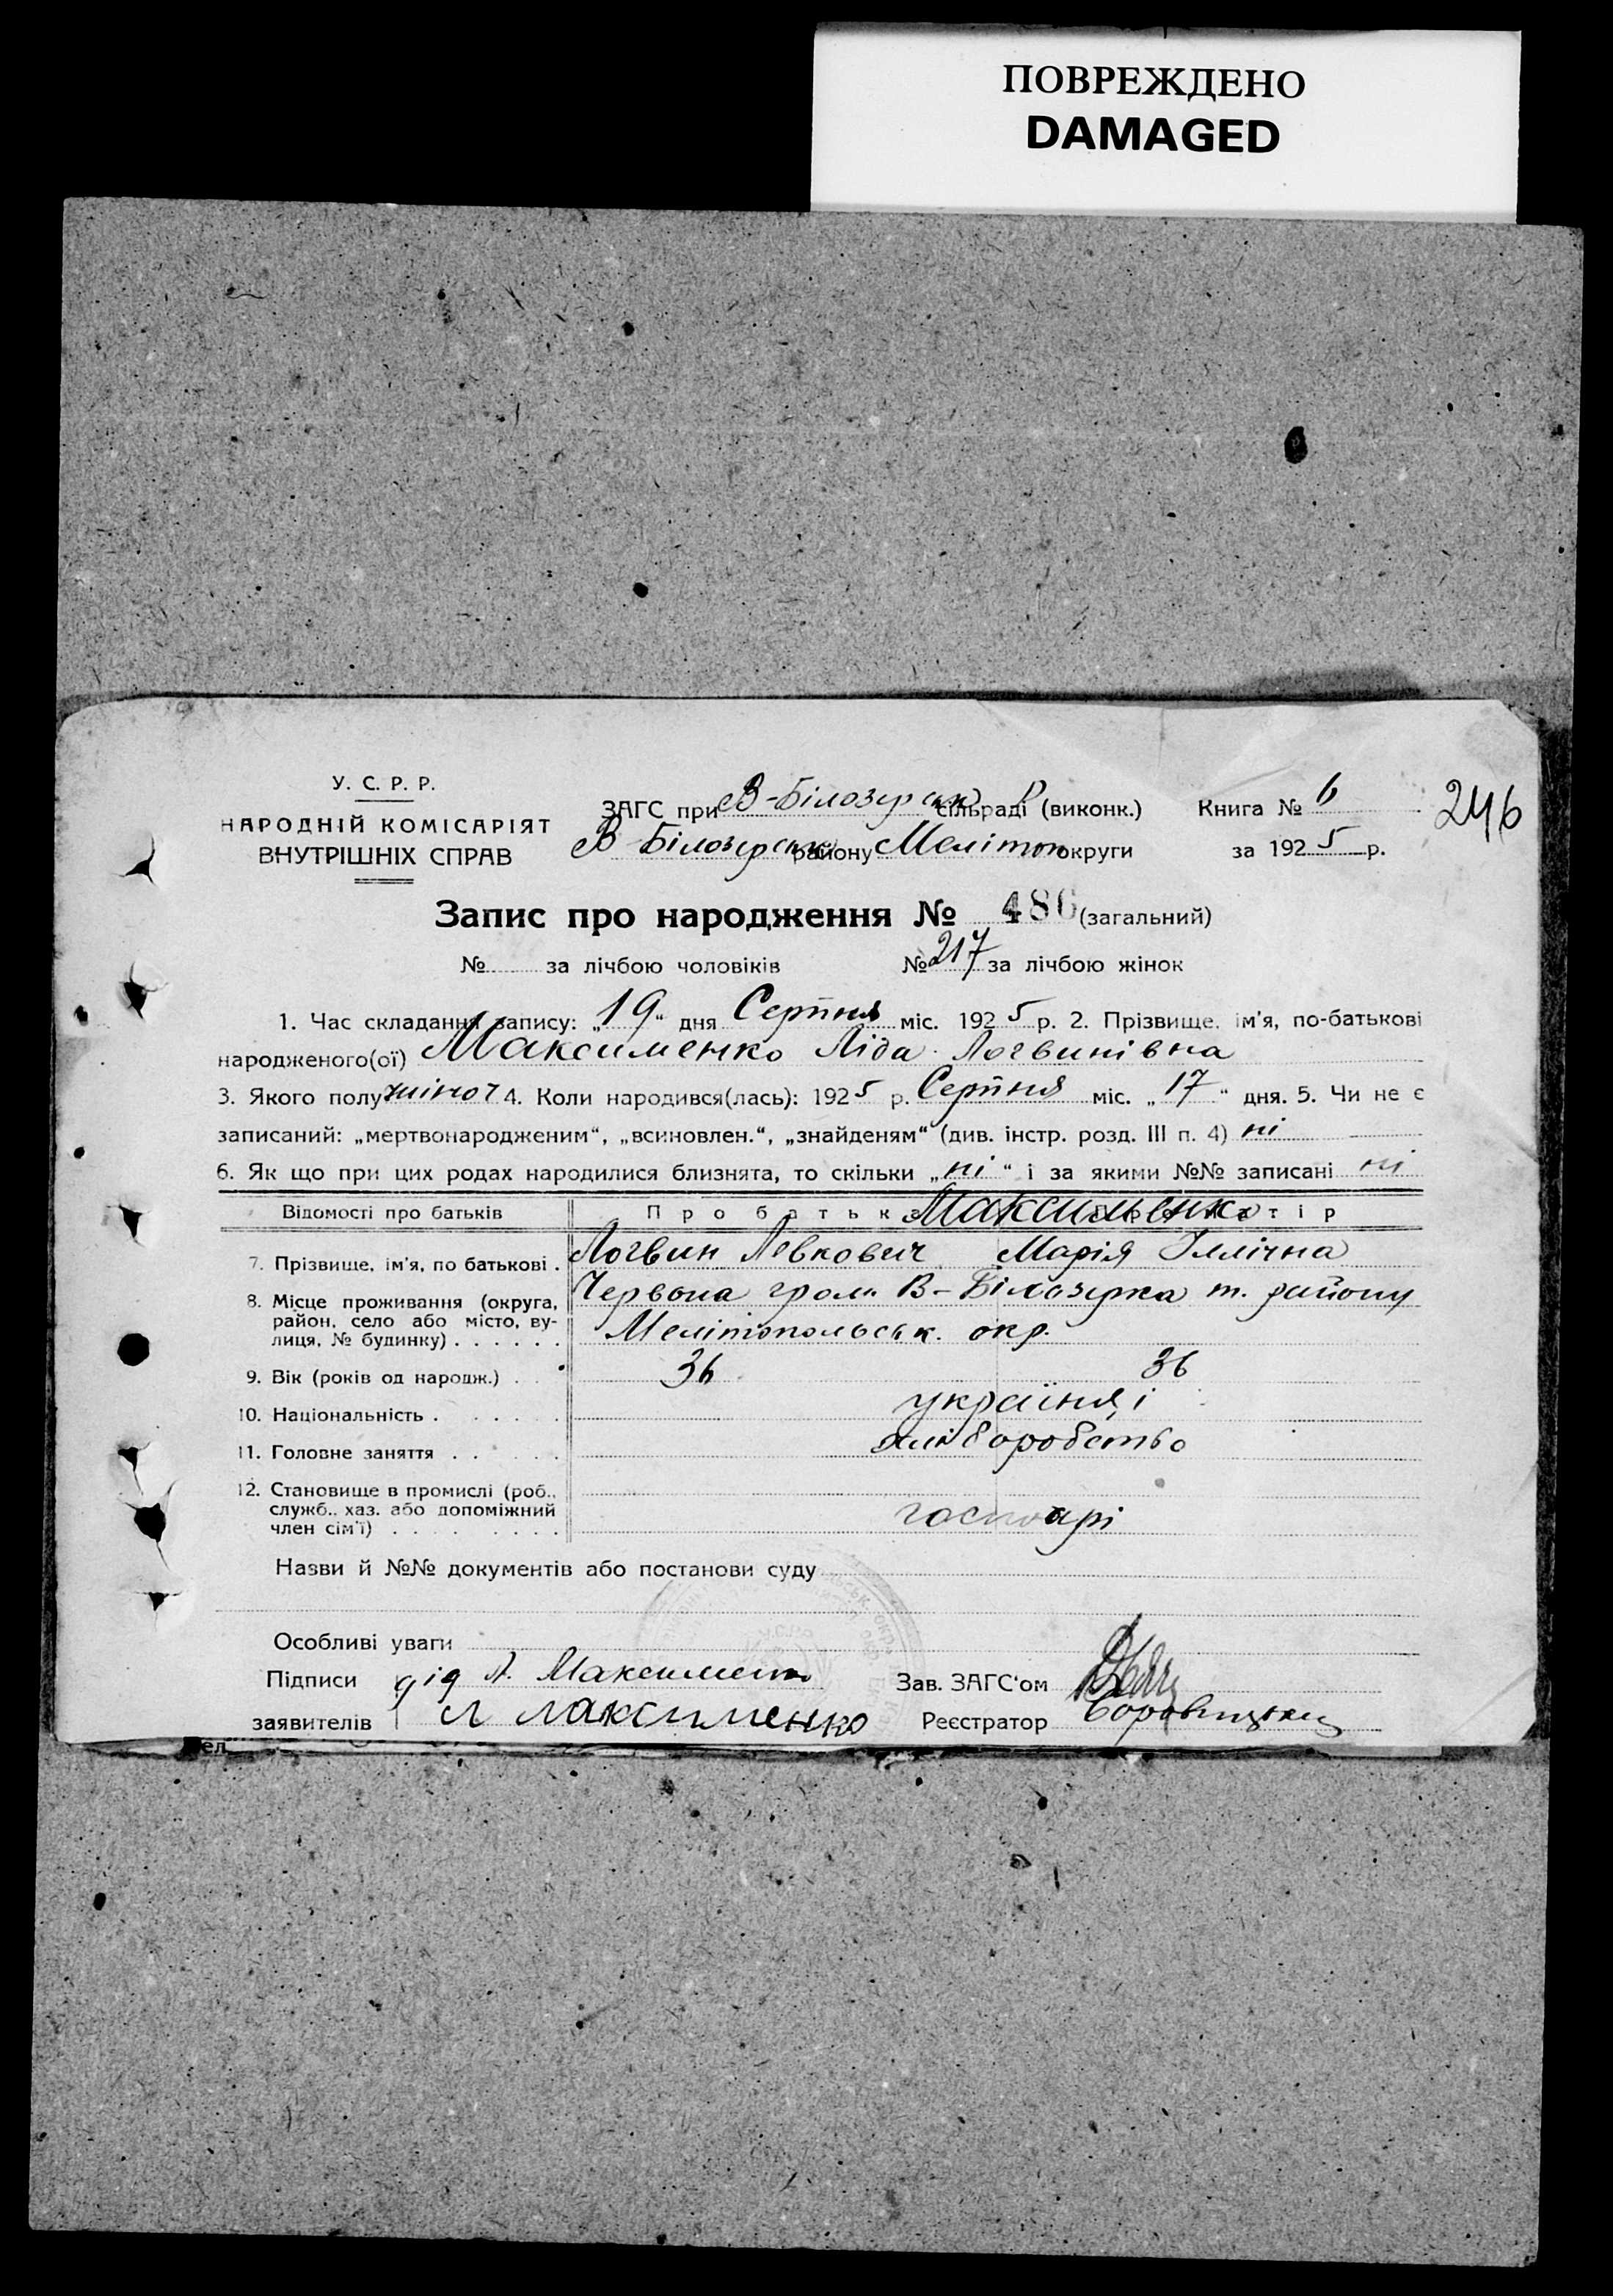 ПОВРЕЖДЕНО
DAMAGED
У. С. Р. Р.
НАРОДНІЙ КОМІСАРІЯТ
ВНУТРІШНІХ СПРАВ
ЗАГС при В-Білозерськ Р сільраді (виконк.) Книга № 6
246
В Білозерськ району Меліто́п округи за 1925 р.
Запис про народження № 486 (загальний)
№ за лічбою чоловіків № 217 за лічбою жінок
1. Час складання запису: „19“ дня Серпня міс. 1925 р. 2. Прізвище, ім'я, по-батькові
народженого(ої) Максименко Ліда Логвинівна
3. Якого полу жіноч 4. Коли народився(лась): 1925 р. Серпня міс. „17“ дня. 5. Чи не є
записаний: „мертвонародженим“, „всиновлен.“, „знайденям“ (див. інстр. розд. III п. 4) ні
6. Як що при цих родах народилися близнята, то скільки „ні“ і за якими №№ записані ні
Відомості про батьків Про батька Максименко Про матір
7. Прізвище, ім'я, по батькові . Логвин Левкович Марія Іллічна
8. Місце проживання (округа, район, село або місто, вулиця, № будинку) . . . . . . Червона гром. В-Білозерка т. району
Мелітопольськ. окр.
9. Вік (років од народж.) . . 36 36
10. Національність . . . . . україняці
11. Головне заняття . . . . . хліборобство
12. Становище в промислі (роб.,
служб., хаз. або допоміжний
член сім'ї) . . . . . . . . госпоарі
Назви й №№ документів або постанови суду
Особливі уваги
Підписи дід Л. Максименко Зав. ЗАГС'ом
заявителів Л Максименко Реєстратор